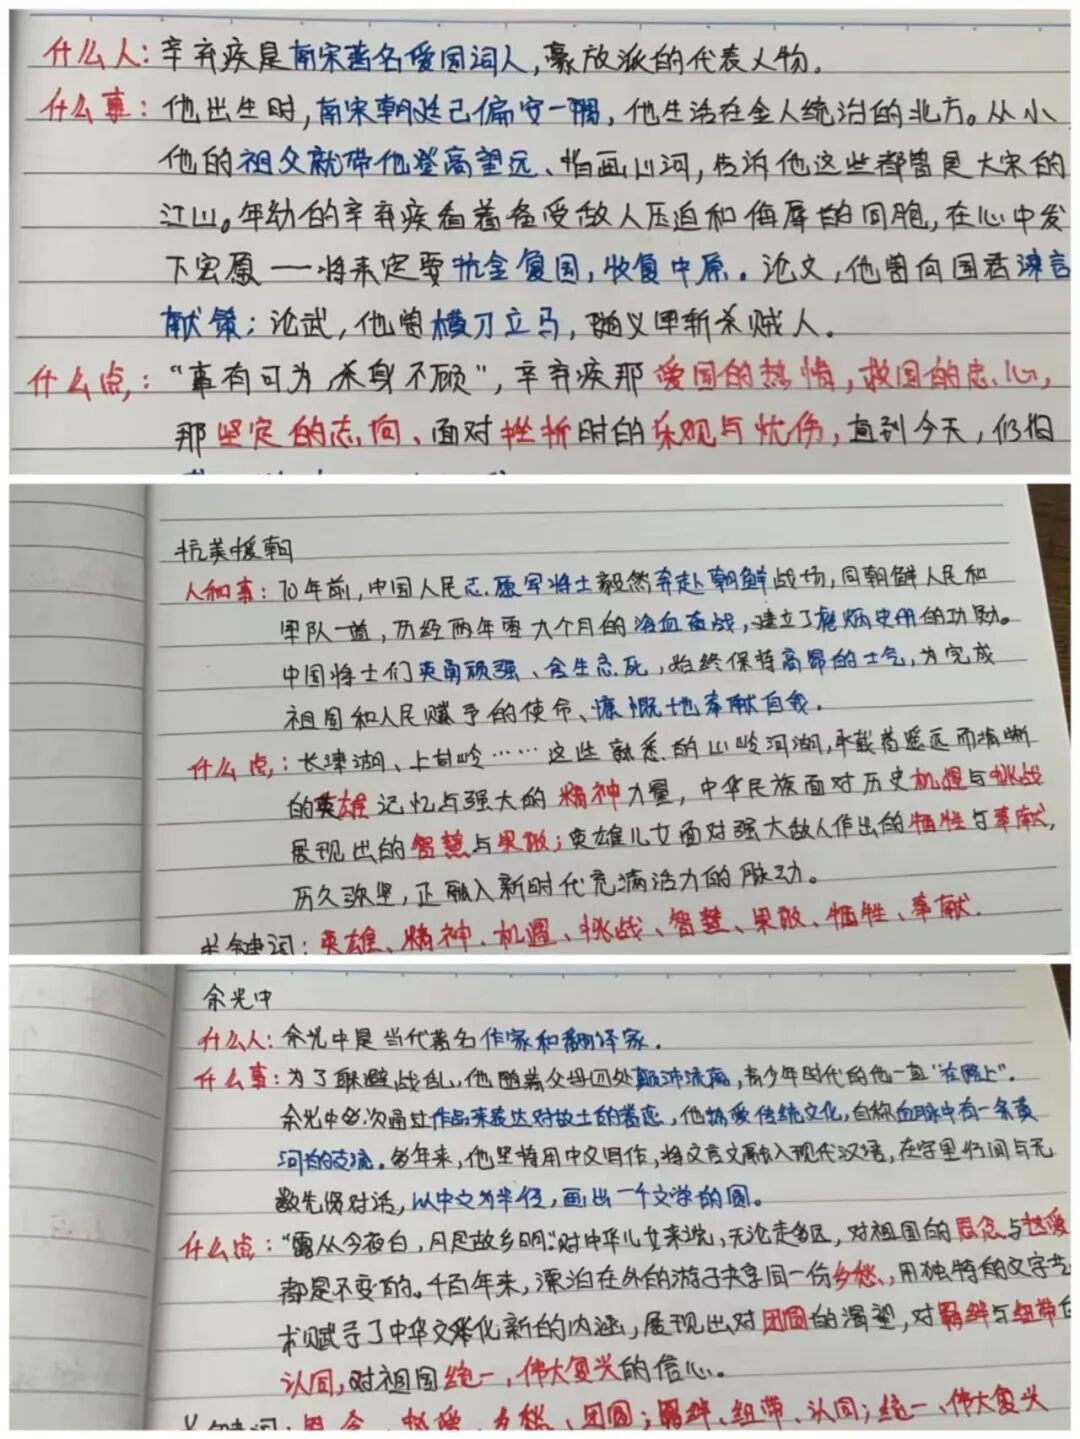 什么人：辛弃疾是南宋著名爱国词人，豪放派的代表人物。
什么事：他出生时，南宋朝廷已偏安一隅，他生活在金人统治的北方。从小
他的祖父就带他登高望远、指画山河，告诉他这些都曾是大宋的
江山。年幼的辛弃疾看着备受敌人压迫和侮辱的同胞，在心中发
下宏愿——将来定要抗金复国，收复中原。论文，他曾向国君谏言
献策；论武，他曾横刀立马，随义军斩杀贼人。
什么点：“事有可为，杀身不顾”，辛弃疾那爱国的热情，救国的忠心，
那坚定的志向、面对挫折时的乐观与忧伤，直到今天，仍
抗美援朝
人和事：70年前，中国人民志愿军将士毅然奔赴朝鲜战场，同朝鲜人民和
军队一道，历经两年零九个月的浴血奋战，建立了彪炳史册的功勋。
中国将士们英勇顽强、舍生忘死，始终保持高昂的士气，为完成
祖国和人民赋予的使命、慷慨地奉献自我。
什么点：长津湖、上甘岭……这些熟悉的山岭河湖，承载着遥远而清晰
的英雄记忆与强大的精神力量，中华民族面对历史机遇与挑战
展现出的智慧与果敢；英雄儿女面对强大敌人作出的牺牲与奉献，
历久弥坚，正融入新时代充满活力的脉动。
关键词：英雄、精神、机遇、挑战、智慧、果敢、牺牲、奉献.
余光中
什么人：余光中是当代著名作家和翻译家.
什么事：为了躲避战乱，他随着父母四处颠沛流离，青少年时代的他一直“在路上”.
余光中多次通过作品来表达对故土的眷恋，他热爱传统文化，自称血脉中有一条黄
河的支流。多年来，他坚持用中文写作，将文言文融入现代汉语，在字里行间与无
数先贤对话，以中文为半径，画出一个文学的圆。
什么点：“露从今夜白，月是故乡明”.对中华儿女来说，无论走多远，对祖国的思念与热爱
都是不变的。千百年来，漂泊在外的游子共享同一份乡愁，用独特的文字艺
术赋予了中华文化新的内涵，展现出对团圆的渴望，对羁绊与纽带的
认同，对祖国统一、伟大复兴的信心。
关键词：思念、热爱、乡愁、团圆；羁绊、纽带、认同；统一、伟大复兴